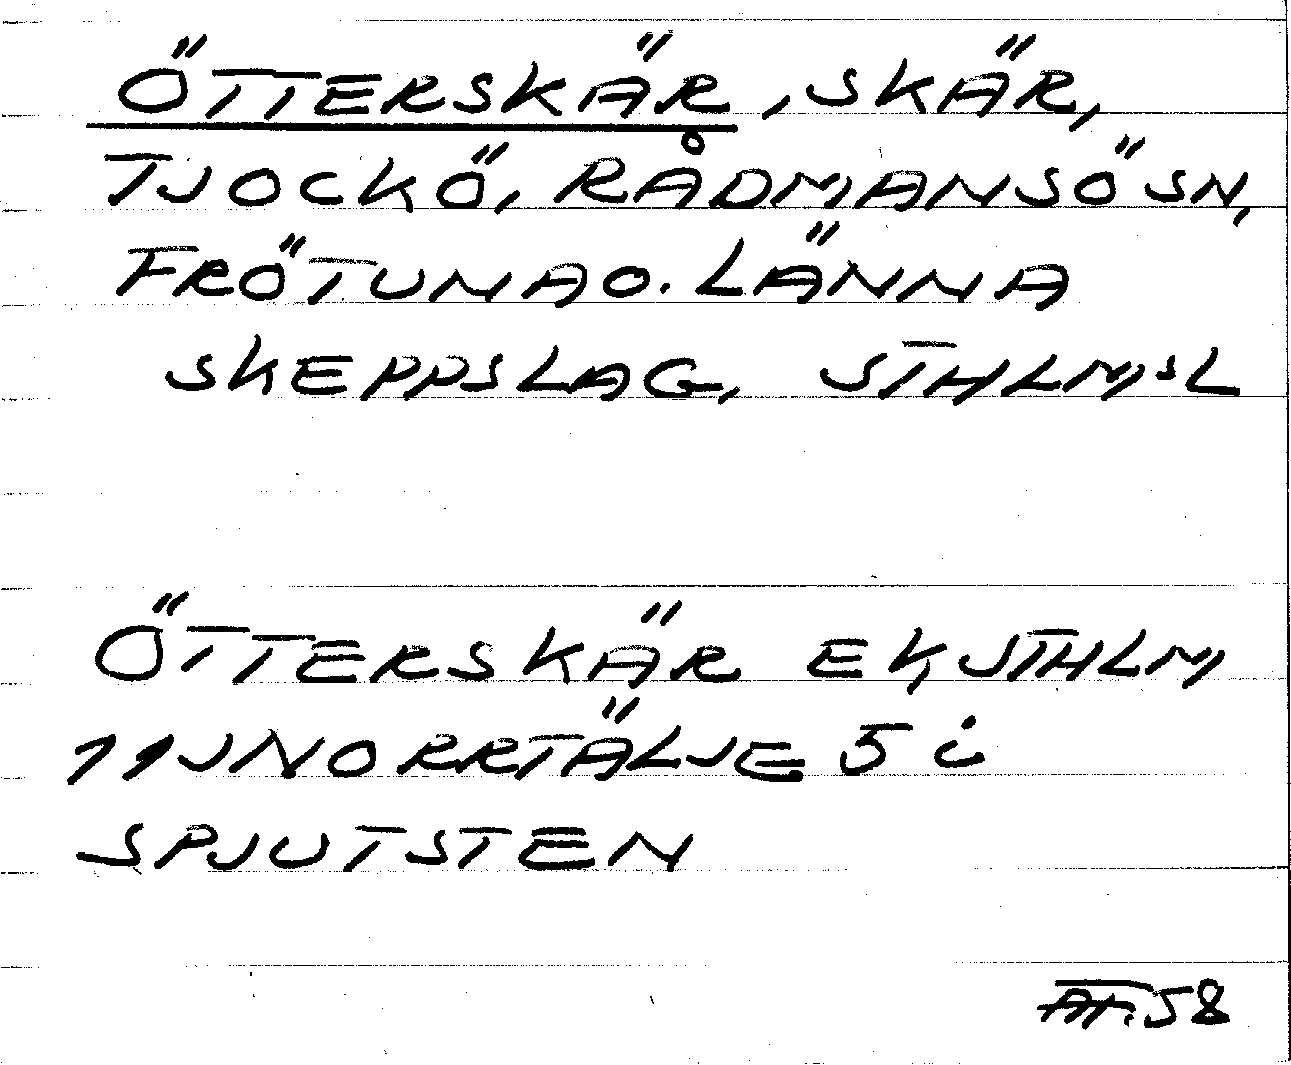 ÖTTERSKÄR, SKÄR,
TJOCKÖ, RÅDMANSÖ SN,
FRÖTUNA O. LÄNNA
SKEPPSLAG, STHLMSL
ÖTTERSKÄR EK, STHLM,
11J NORRTÄLJE 5 i
SPJUTSTEN